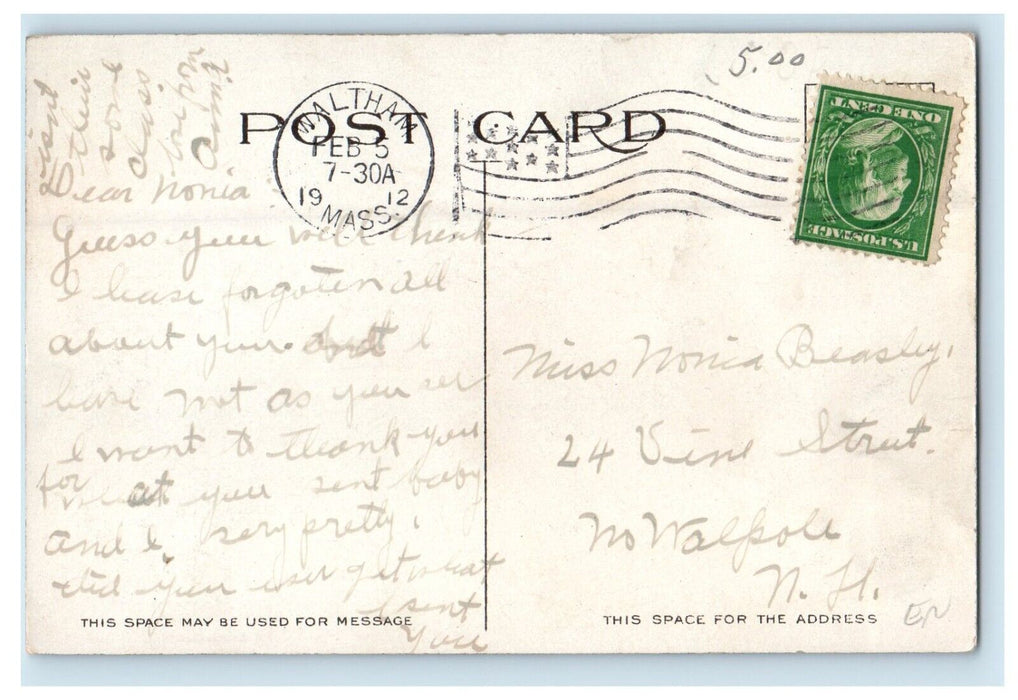 5.00
POST CARD
WALTHAM
FEB 5
7-30A
19 12
MASS.
ONE CENT
U.S. POSTAGE
Dear Nonia
Guess you will think
I have forgoten all
about you. but I
have not as you see
I want to thank you
for what you sent baby
and I. very pretty.
did you ever get what
I sent
you
Miss Nonia Beasley,
24 Vine Street.
No Walpole
N. H.
THIS SPACE MAY BE USED FOR MESSAGE
THIS SPACE FOR THE ADDRESS
EN